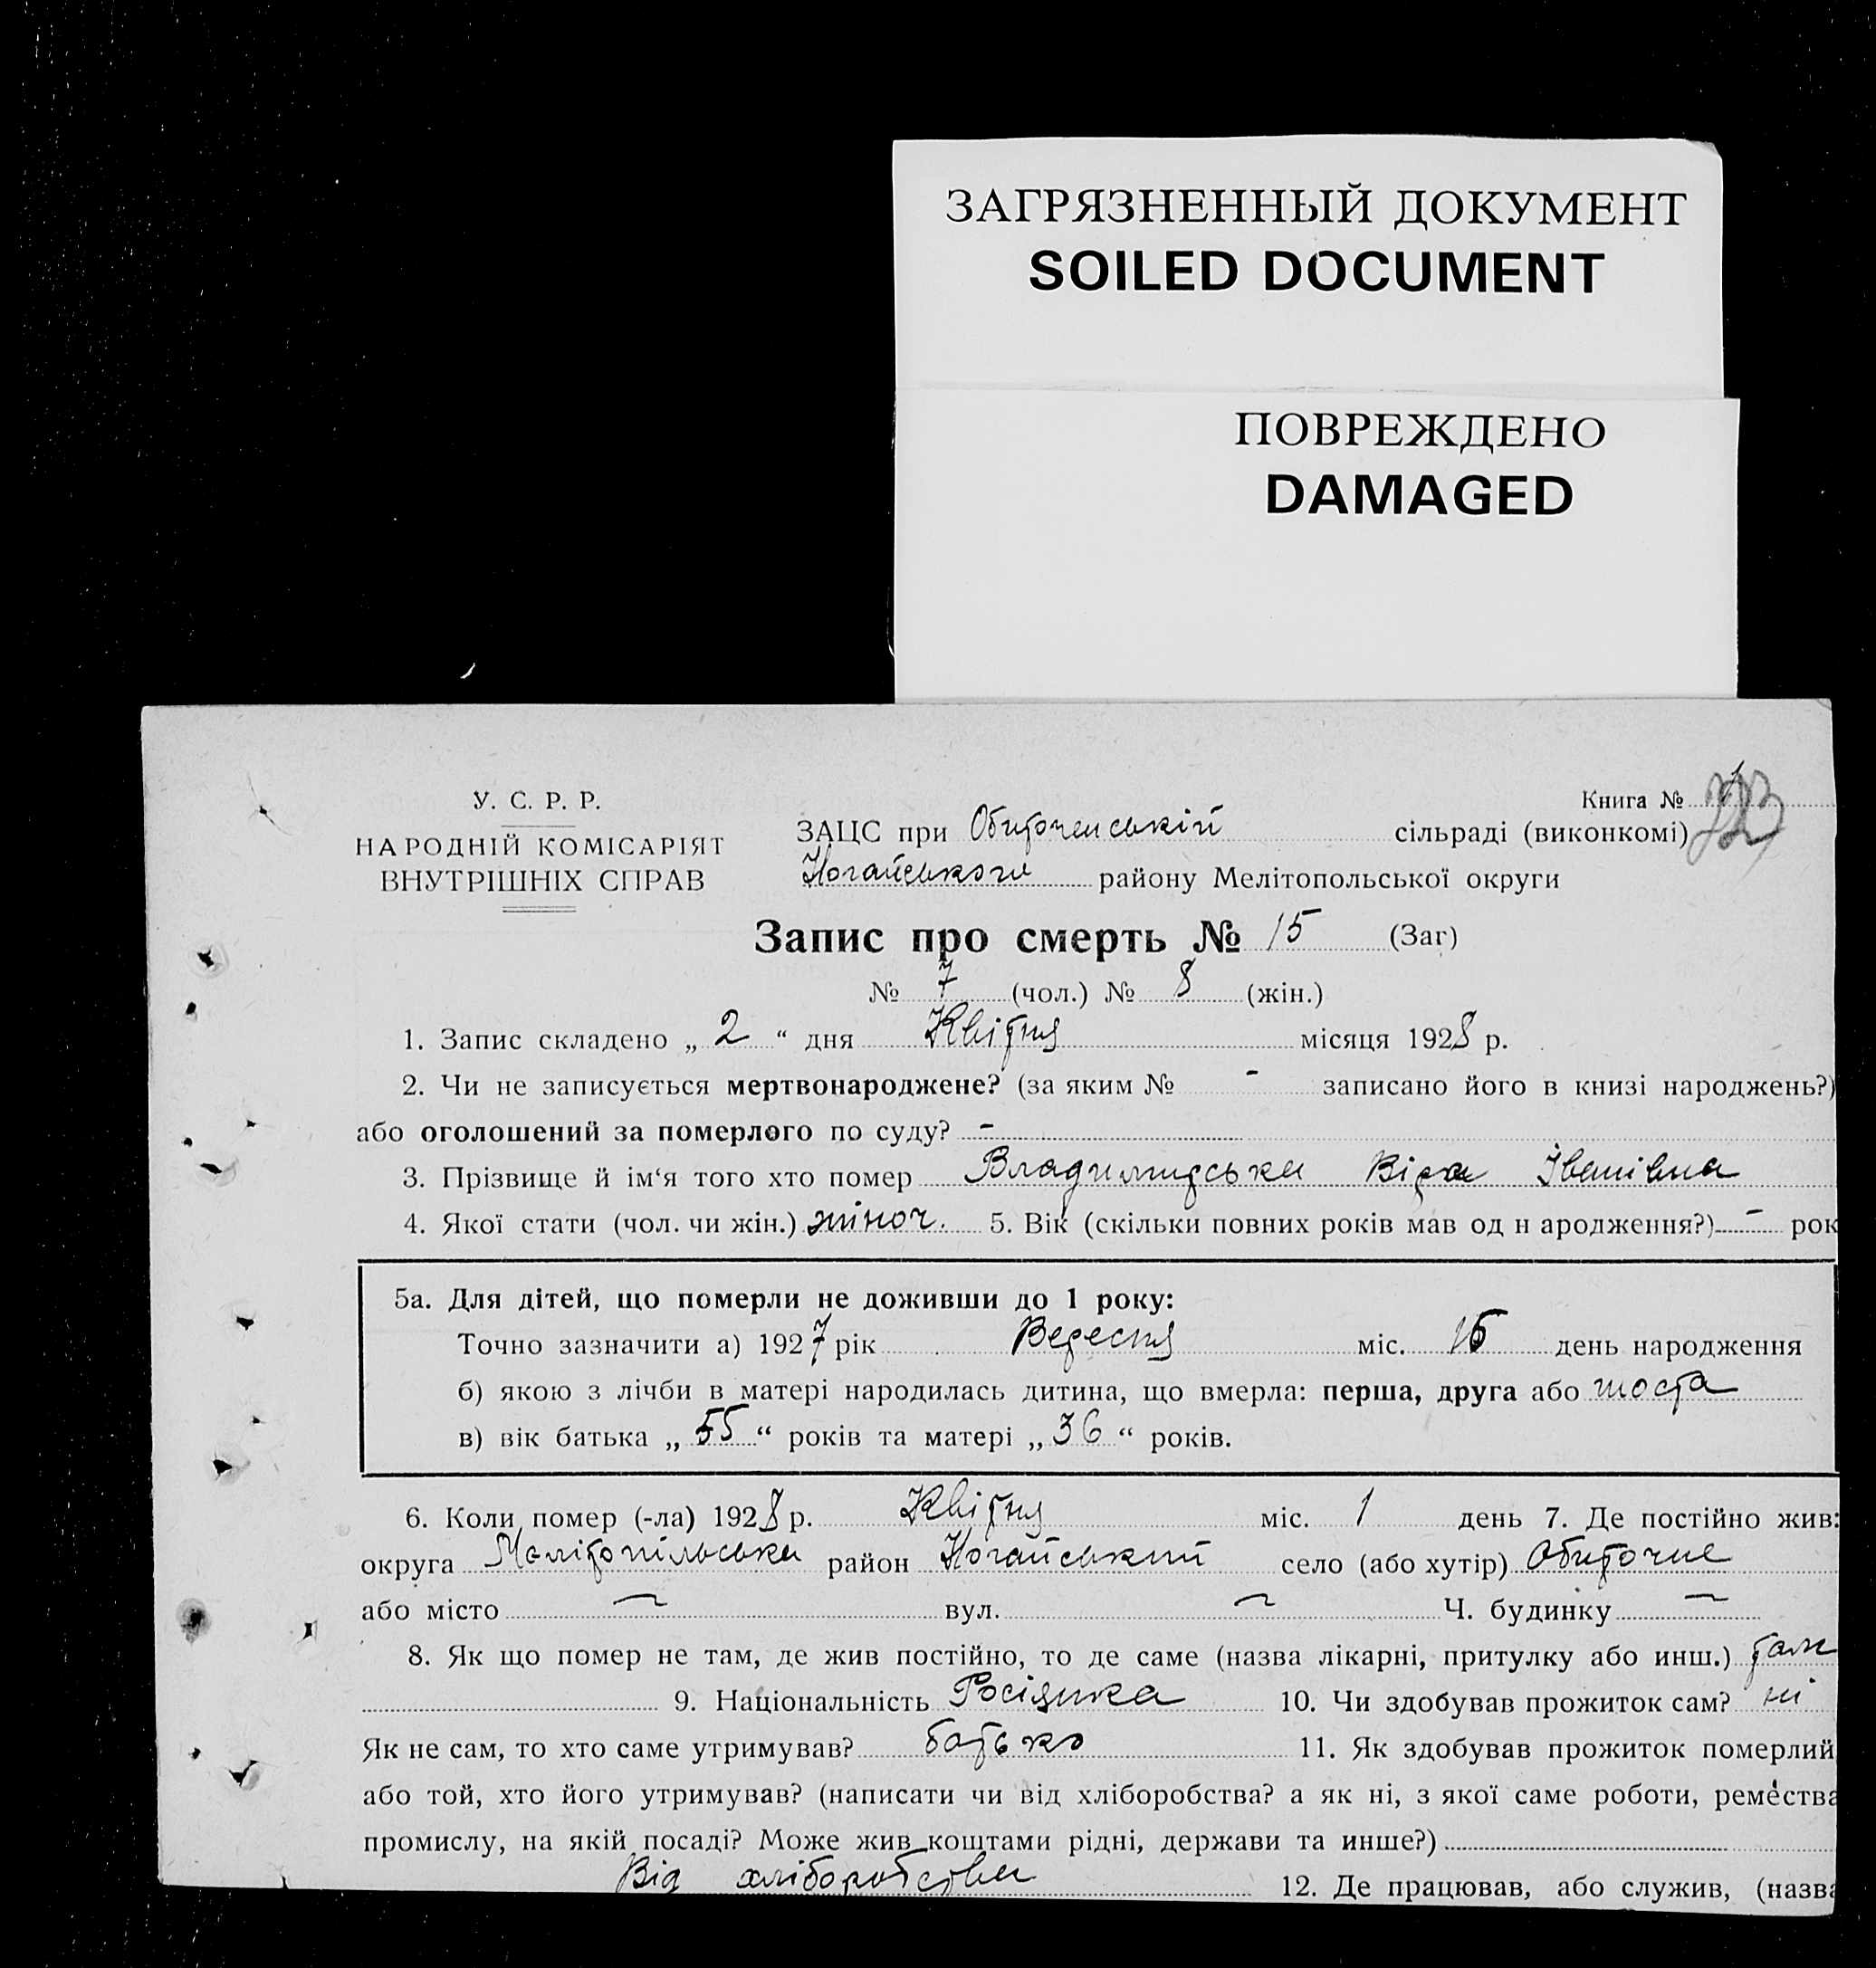 ЗАГРЯЗНЕННЫЙ ДОКУМЕНТ
SOILED DOCUMENT
ПОВРЕЖДЕНО
DAMAGED
У. С. Р. Р.
НАРОДНІЙ КОМІСАРІЯТ
ВНУТРІШНІХ СПРАВ
Книга №
ЗАЦС при Обиточенській сільраді (виконкомі)
Ногайського району Мелітопольської округи
Запис про смерть № 15 (Заг)
№ 7 (чол.) № 8 (жін.)
1. Запис складено „ 2 “ дня Квітня місяця 1928 р.
2. Чи не записується мертвонароджене? (за яким № - записано його в книзі народжень?)
або оголошений за померлого по суду? -
3. Прізвище й ім‘я того хто помер Владимирська Віра Іванівна
4. Якої стати (чол. чи жін.) жіноч. 5. Вік (скільки повних років мав од н ародження?) - рок
5а. Для дітей, що померли не доживши до 1 року:
Точно зазначити а) 1927 рік Вересня міс. 16 день народження
б) якою з лічби в матері народилась дитина, що вмерла: перша, друга або шоста
в) вік батька „ 55 “ років та матері „ 36 “ років.
6. Коли помер (-ла) 1928 р. Квітня міс. 1 день 7. Де постійно жив:
округа Мелітопільська район Ногайський село (або хутір) Обиточне
або місто ~ вул. ~ Ч. будинку ~
8. Як що помер не там, де жив постійно, то де саме (назва лікарні, притулку або инш.) там
9. Національність Росіянка 10. Чи здобував прожиток сам? ні
Як не сам, то хто саме утримував? батько 11. Як здобував прожиток померлий
або той, хто його утримував? (написати чи від хліборобства? а як ні, з якої саме роботи, ремества
промислу, на якій посаді? Може жив коштами рідні, держави та инше?)
Від хліборобства 12. Де працював, або служив, (назва